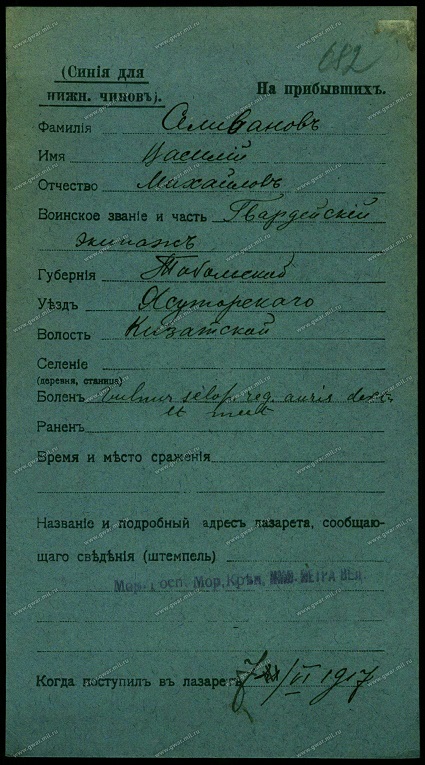 682
(Синія для
нижн. чиновъ).
На прибывшихъ.
Фамилія Селивановъ
Имя Василій
Отчество Михайловъ
Воинское званіе и часть Гвардейскій
экипажъ
Губернія Тобольской
Уѣздъ
Волость Кизатской
Селеніе
(деревня, станица)
Боленъ vulnus sclop. reg. auris dext.
et
Раненъ
Время и мѣсто сраженія
Названіе и подробный адресъ лазарета, сообщаю-
щаго свѣдѣнія (штемпель)
Мор. Госп. Мор. Крѣп. ИМП. ПЕТРА ВЕЛ.
Когда поступилъ въ лазаретъ /VI 1917
www.gwar.mil.ru